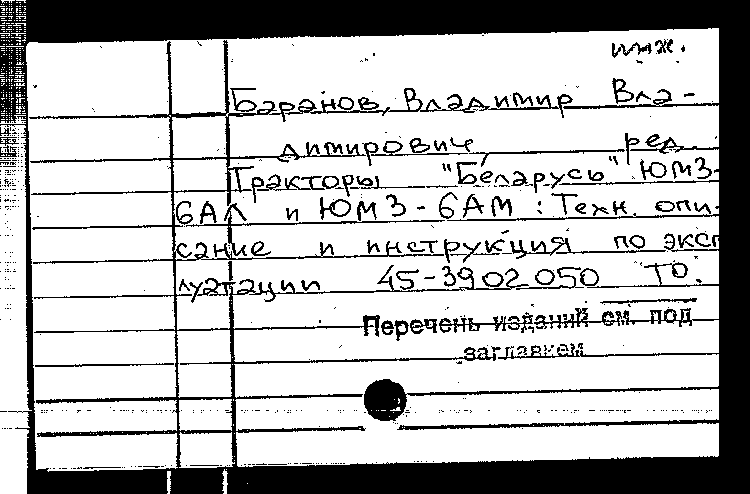 инж.
Баранов, Владимир Вла-
димирович, ред.
Тракторы "Беларусь" ЮМЗ-
6АЛ и ЮМЗ-6АМ : Техн. опи-
сание и инструкция по эксп
луатации 45-3902.050 ТО.
Перечень изданий см. под
заглавием